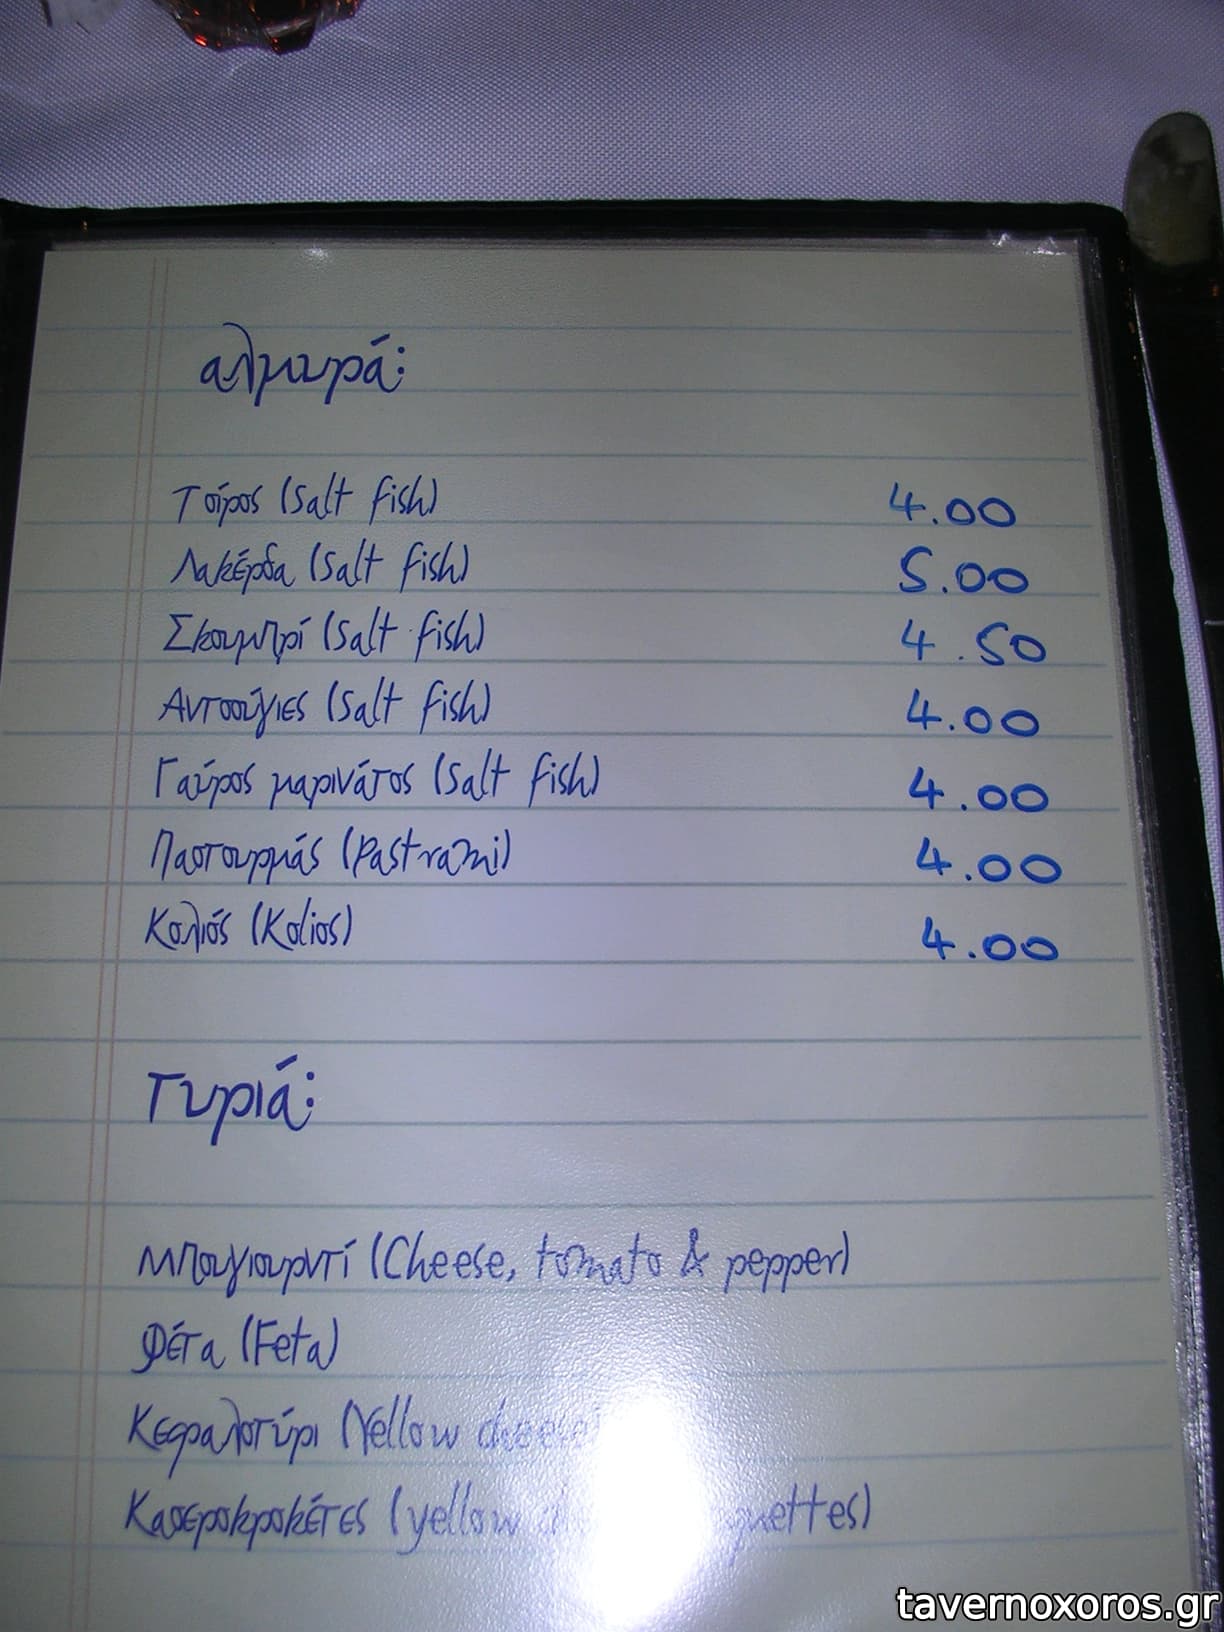 αλμυρά:
Τσίρος (Salt fish) 4.00
Λακέρδα (Salt fish) 5.00
Σκουμπρί (Salt fish) 4.50
Αντσούγιες (Salt fish) 4.00
Γαύρος μαρινάτος (Salt fish) 4.00
Παστουρμάς (Pastrami) 4.00
Κολιός (Kolios) 4.00
Τυριά:
Μπουγιουρντί (Cheese, tomato & pepper)
Φέτα (Feta)
Κεφαλοτύρι (Yellow cheese)
Κασεροκροκέτες (yellow
tavernoxoros.gr